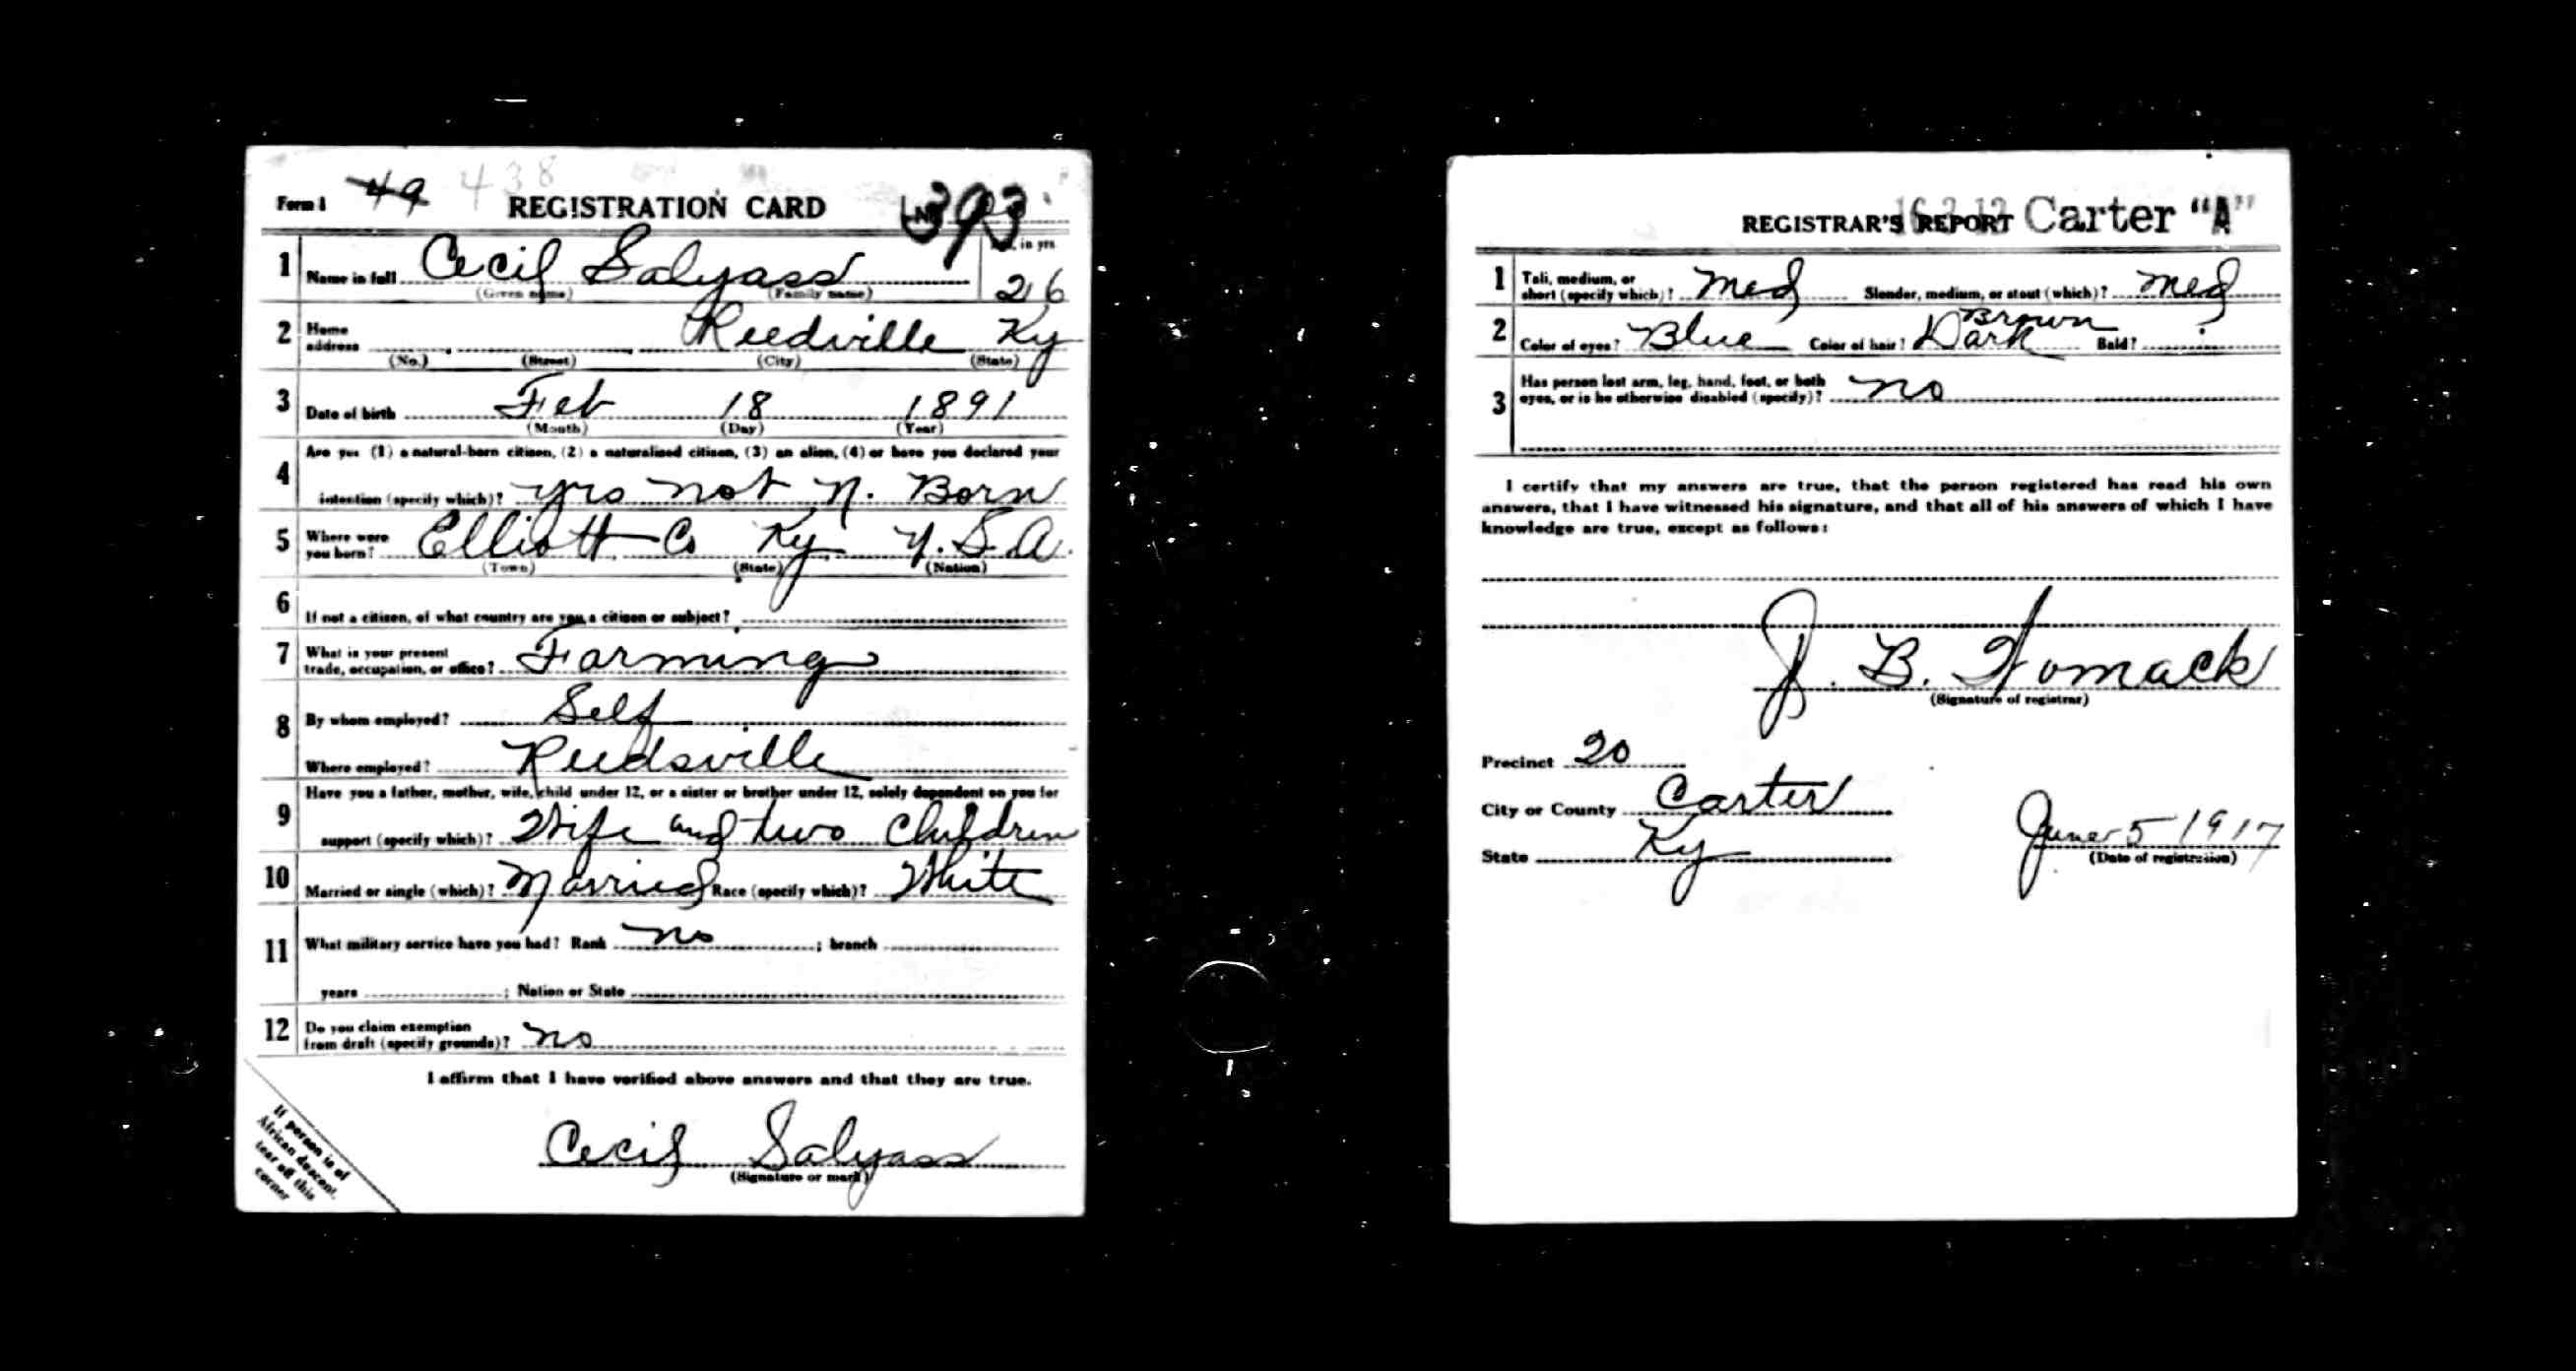 Form 1 49 438 REGISTRATION CARD No 393
1 Name in full Cecil Salyass Age, in yrs 26
(Given name) (Family name)
2 Home address Reedville Ky
(No.) (Street) (City) (State)
3 Date of birth Feb 18 1891
(Month) (Day) (Year)
4 Are you (1) a natural-born citizen, (2) a naturalized citizen, (3) an alien, (4) or have you declared your
intention (specify which)? yrs not N. Born
5 Where were you born? Elliott Co Ky U.S.A.
(Town) (State) (Nation)
6 If not a citizen, of what country are you a citizen or subject?
7 What is your present
trade, occupation, or office? Farming
8 By whom employed? Self
Where employed? Reedsville
9 Have you a father, mother, wife, child under 12, or a sister or brother under 12, solely dependent on you for
support (specify which)? Wife and two Children
10 Married or single (which)? Married Race (specify which)? White
11 What military service have you had? Rank no ; branch
years ; Nation or State
12 Do you claim exemption
from draft (specify grounds)? no
I affirm that I have verified above answers and that they are true.
Cecil Salyass
(Signature or mark)
If person is of
African descent,
tear off this
corner
REGISTRAR'S REPORT Carter "A"
1 Tall, medium, or
short (specify which)? Med Slender, medium, or stout (which)? Med
2 Color of eyes? Blue Color of hair? Dark Brown Bald?
3 Has person lost arm, leg, hand, foot, or both
eyes, or is he otherwise disabled (specify)? no
I certify that my answers are true, that the person registered has read his own
answers, that I have witnessed his signature, and that all of his answers of which I have
knowledge are true, except as follows:
J. B. Womack
(Signature of registrar)
Precinct 20
City or County Carter
State Ky
June 5 1917
(Date of registration)